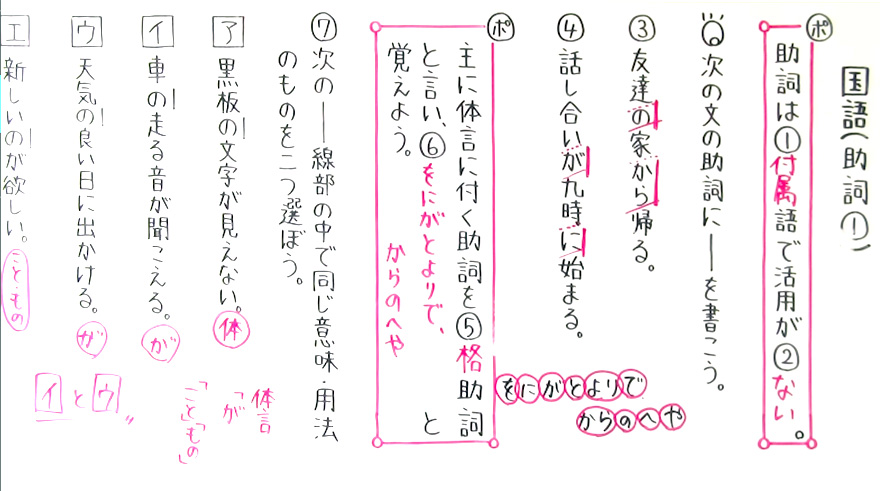 国語(助詞①)
ポ
助詞は①付属語で活用が②ない。
Q次の文の助詞に―を書こう。
③友達の家から帰る。
④話し合いが九時に始まる。
をにがとよりで
からのへや
ポ
主に体言に付く助詞を⑤格助詞
と言い、⑥をにがとよりで、
からのへや
と
覚えよう。
⑦次の―線部の中で同じ意味・用法
のものを二つ選ぼう。
ア 黒板の文字が見えない。体
イ 車の走る音が聞こえる。が
ウ 天気の良い日に出かける。が
エ 新しいのが欲しい。こと・もの
体言
「が
「こと」「もの」
イとウ〃